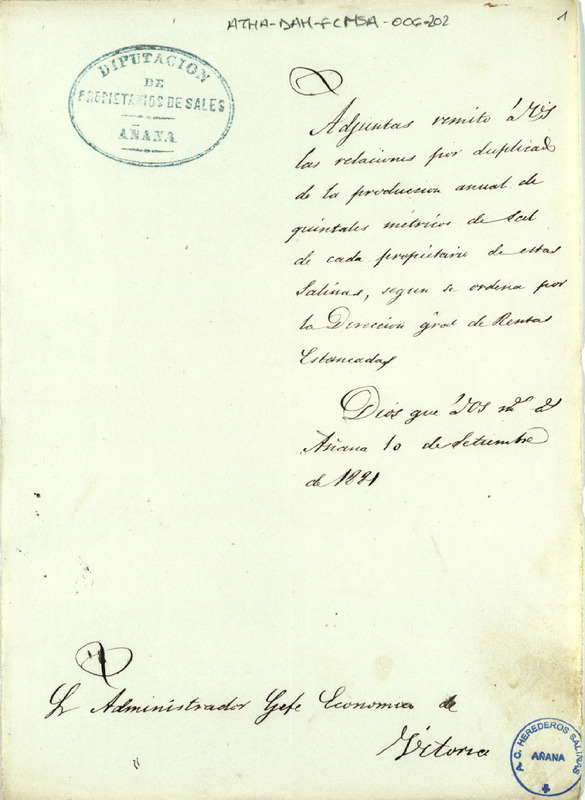 ATHA-DAH-FCMSA-006-202
1
DIPUTACION
DE
PROPIETARIOS DE SALES
AÑANA
Adjuntas remito á VS
las relaciones por duplicado
de la produccion anual de
quintales métricos de sal
de cada propietario de estas
Salinas, segun se ordena por
la Direccion gral de Rentas
Estancadas
Dios gue á VS ms as
Añana 10 de Setiembre
de 1881
Sr Administrador Gefe Economico de
Vitoria
A.C. HEREDEROS SALINAS
AÑANA